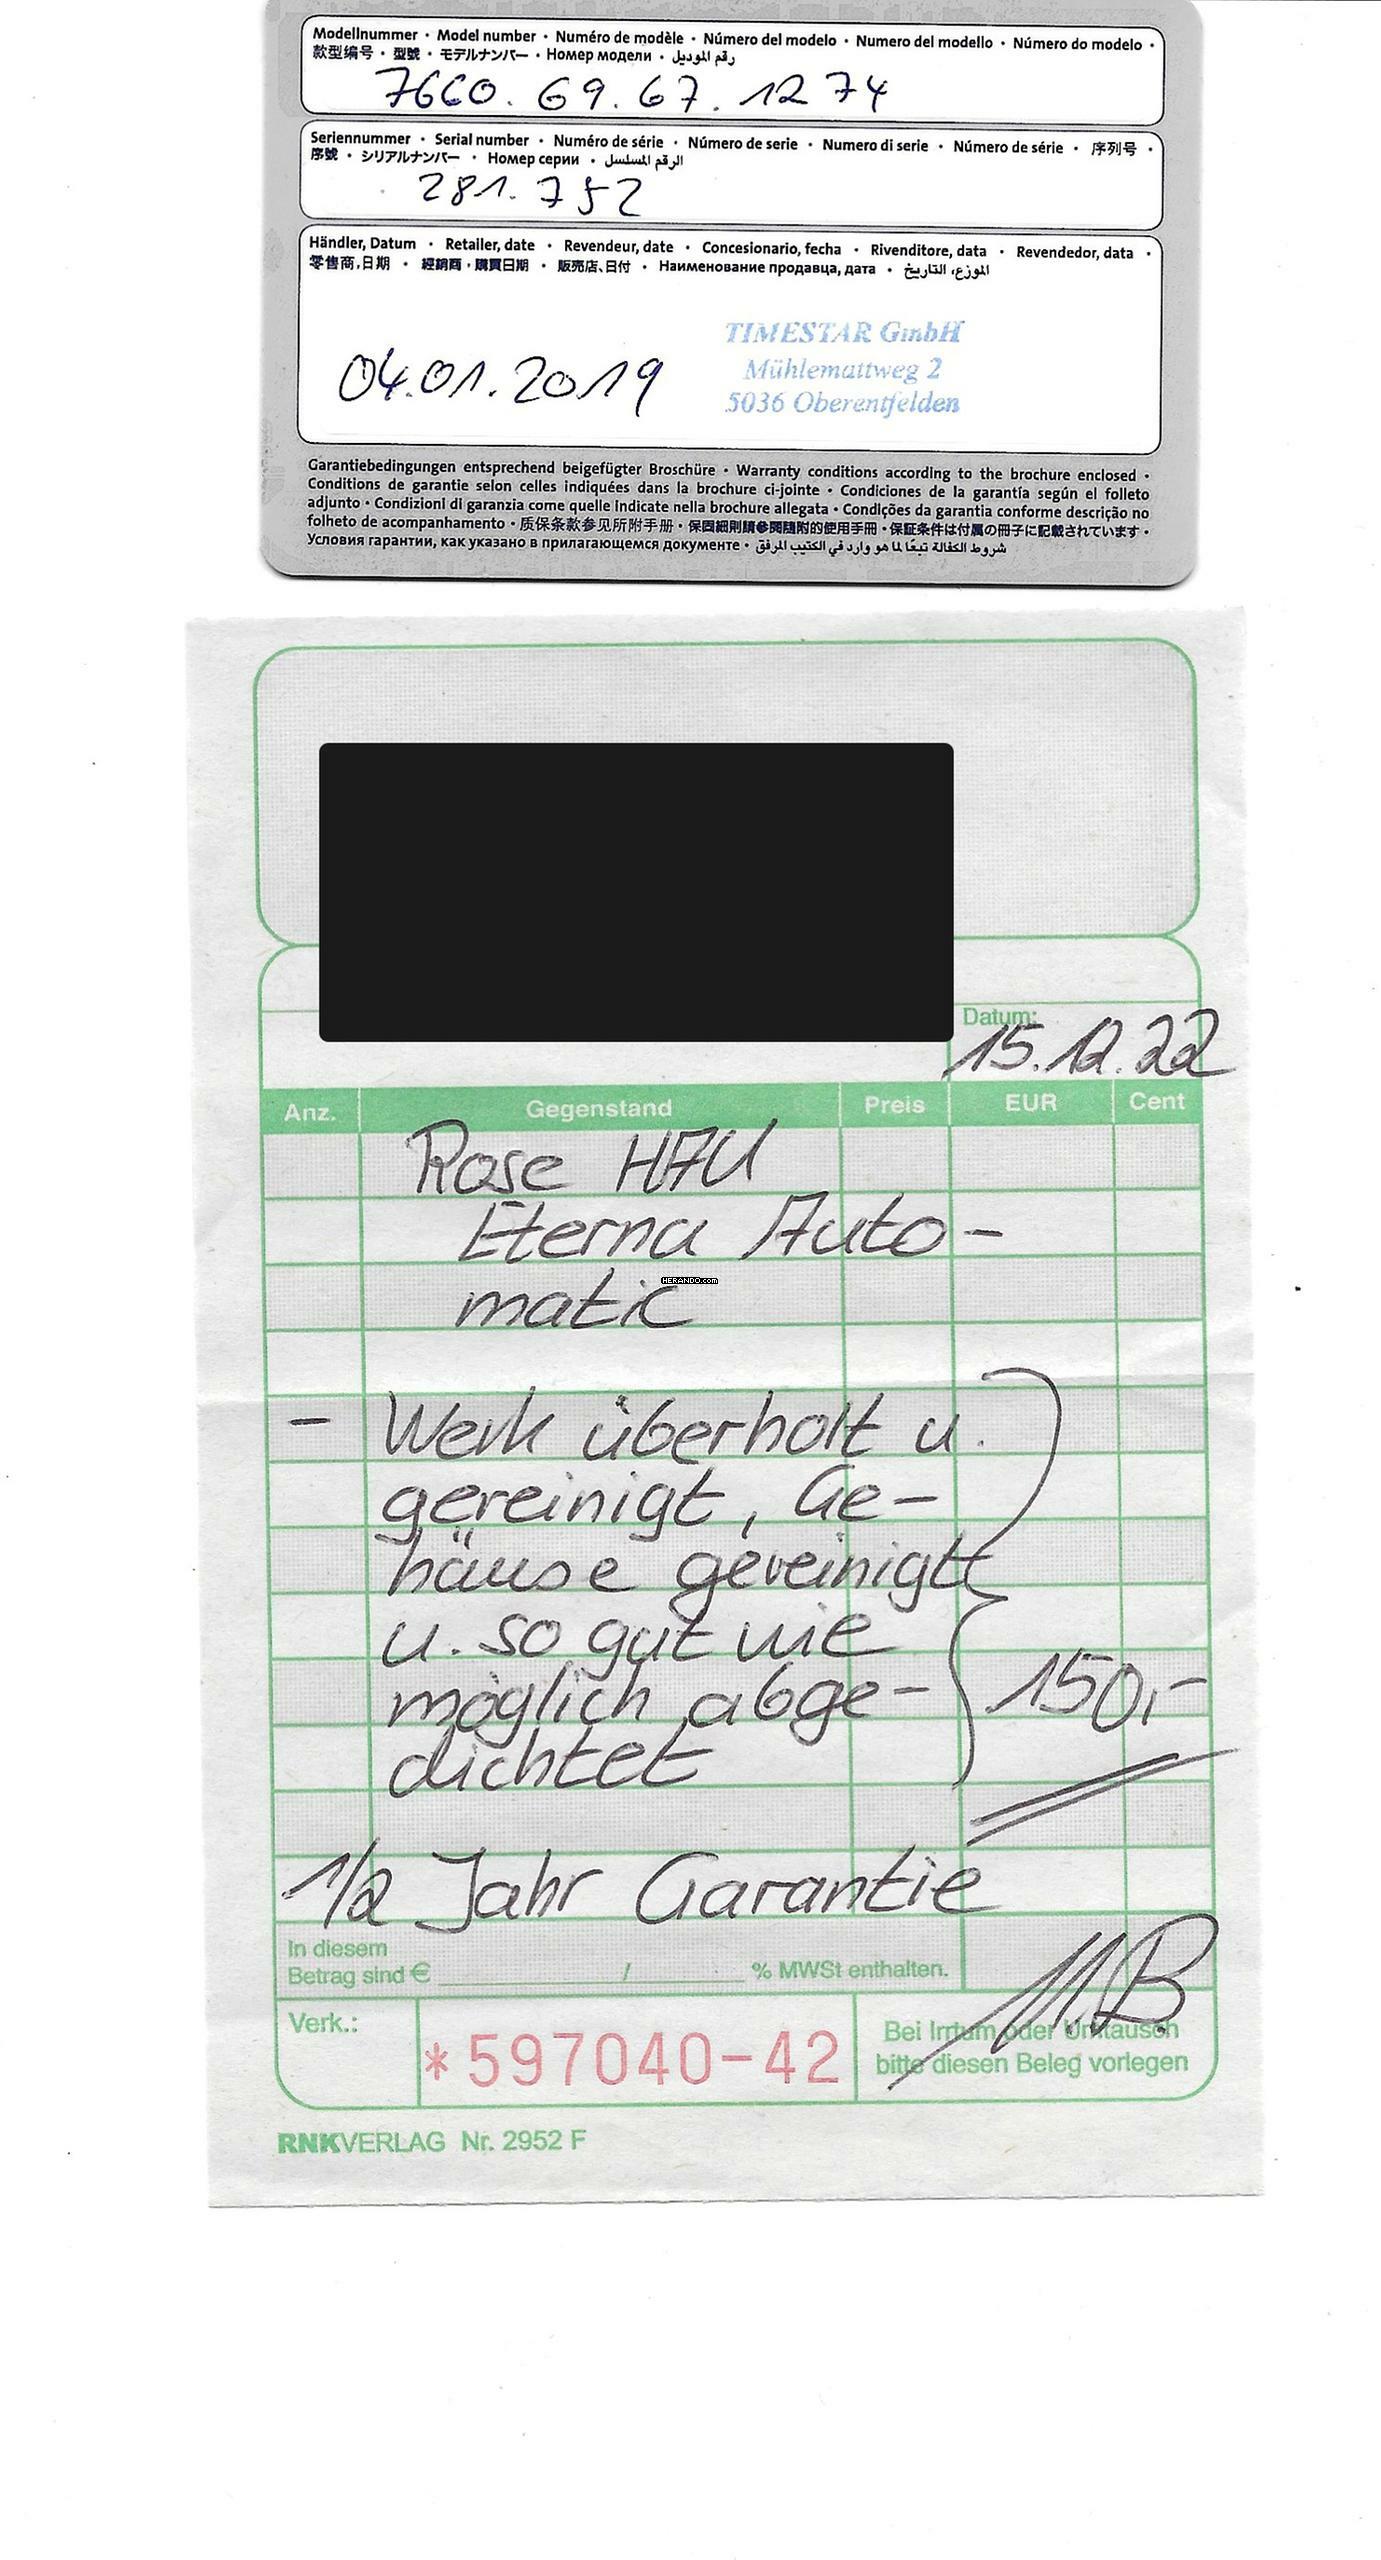 Modellnummer · Model number · Numéro de modèle · Número del modelo · Numero del modello · Número do modelo ·
款型编号 · 型號 · モデルナンバー · Номер модели · رقم الموديل
7660.69.67.1274
Seriennummer · Serial number · Numéro de série · Número de serie · Numero di serie · Número de série · 序列号 ·
序號 · シリアルナンバー · Номер серии · الرقم المسلسل
281.752
Händler, Datum · Retailer, date · Revendeur, date · Concesionario, fecha · Rivenditore, data · Revendedor, data ·
零售商,日期 · 經銷商,購買日期 · 販売店、日付 · Наименование продавца, дата · الموزع، التاريخ
TIMESTAR GmbH
Mühlemattweg 2
5036 Oberentfelden
04.01.2019
Garantiebedingungen entsprechend beigefügter Broschüre · Warranty conditions according to the brochure enclosed ·
Conditions de garantie selon celles indiquées dans la brochure ci-jointe · Condiciones de la garantía según el folleto
adjunto · Condizioni di garanzia come quelle indicate nella brochure allegata · Condições da garantia conforme descrição no
folheto de acompanhamento · 质保条款参见所附手册 · 保固細則請參閱隨附的使用手冊 · 保証条件は付属の冊子に記載されています ·
Условия гарантии, как указано в прилагающемся документе · شروط الكفالة تبعًا لما هو وارد في الكتيب المرفق
Datum:
15.12.22
Anz. Gegenstand Preis EUR Cent
Rose HAU
Eterna Auto-
matic
HERANDO.com
- Werk überholt u.
gereinigt, Ge-
häuse gereinigt
u. so gut wie
möglich abge- 150,-
dichtet
1/2 Jahr Garantie
In diesem
Betrag sind € / % MWSt enthalten.
M.B
Verk.:
*597040-42
Bei Irrtum oder Umtausch
bitte diesen Beleg vorlegen
RNKVERLAG Nr. 2952 F